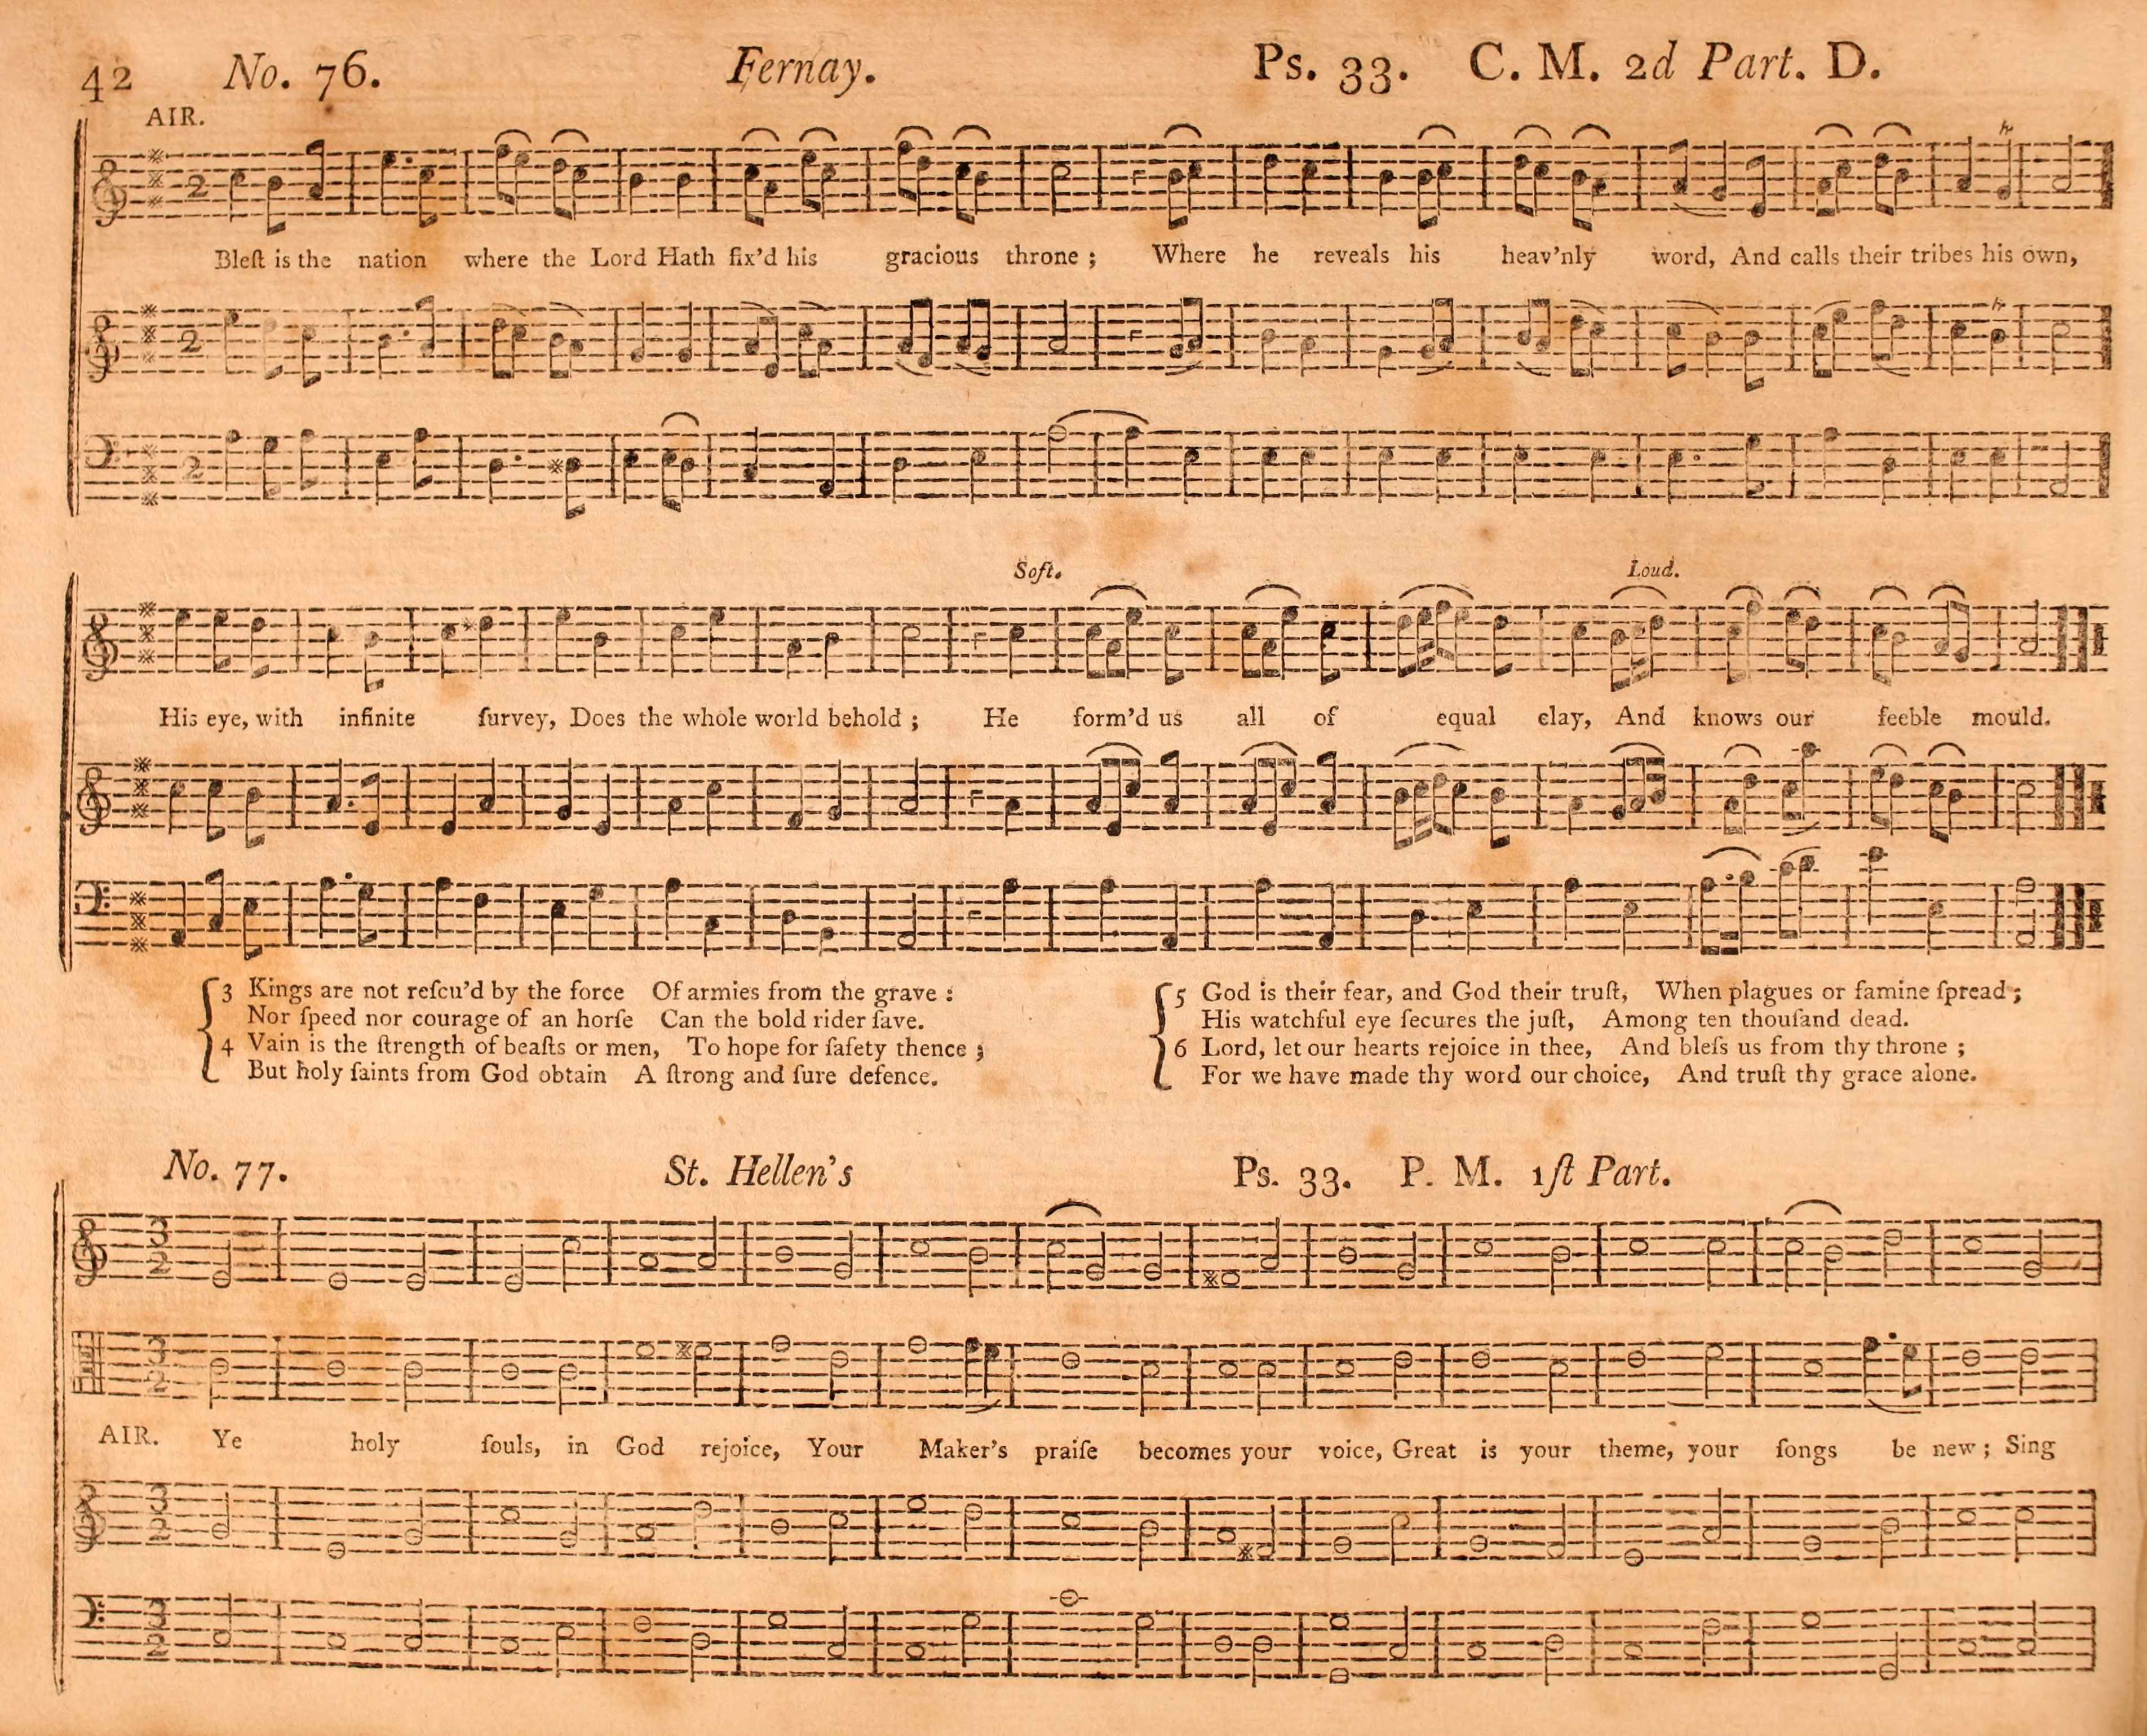 42 No. 76. Fernay. Ps. 33. C. M. 2d Part. D.
AIR.
Bleſt is the nation where the Lord Hath fix'd his gracious throne ; Where he reveals his heav'nly word, And calls their tribes his own,
Soft. Loud.
His eye, with infinite ſurvey, Does the whole world behold ; He form'd us all of equal clay, And knows our feeble mould.
3 Kings are not reſcu'd by the force Of armies from the grave :
Nor ſpeed nor courage of an horſe Can the bold rider ſave.
4 Vain is the ſtrength of beaſts or men, To hope for ſafety thence ;
But holy ſaints from God obtain A ſtrong and ſure defence.
5 God is their fear, and God their truſt, When plagues or famine ſpread ;
His watchful eye ſecures the juſt, Among ten thouſand dead.
6 Lord, let our hearts rejoice in thee, And bleſs us from thy throne ;
For we have made thy word our choice, And truſt thy grace alone.
No. 77. St. Hellen's Ps. 33. P. M. 1ſt Part.
AIR. Ye holy ſouls, in God rejoice, Your Maker's praiſe becomes your voice, Great is your theme, your ſongs be new ; Sing